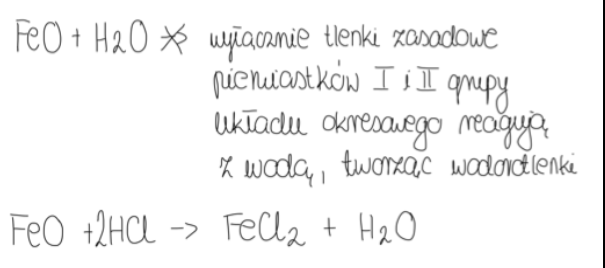 FeO + H2O ↛ wyłącznie tlenki zasadowe
pierwiastków I i II grupy
układu okresowego reagują
z wodą, tworząc wodorotlenki
FeO +2HCl -> FeCl2 + H2O